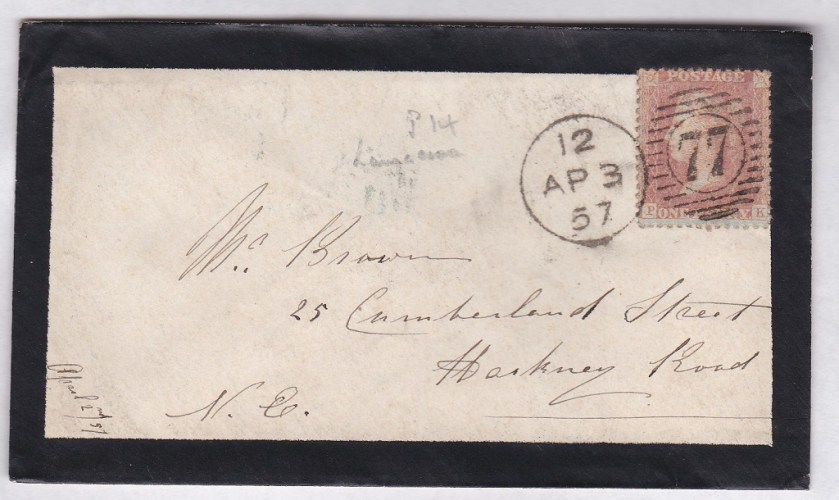 POSTAGE
77
P ONE PENNY K
12
AP 3
57
P 14
Mr. Brown
25 Cumberland Street
Hackney Road
N. E.
April 2nd 57